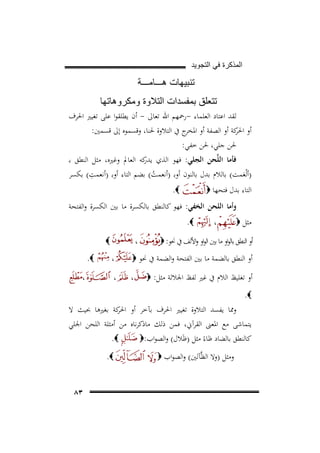 المذكرة في التجويد
تنبيهات هـــامـــة
تتعلق بمفسدات التلاوة ومكروهاتها
لقد اعتاد العلماء -رحمهم الله تعالى - أن يطلقوا على تغيير الحرف
أو الحركة أو الصفة أو المخرج في التلاوة لحنا، وقسموه إلى قسمين:
لحن جلي، لحن خفي:
فأما اللَّحن الجلي: فهو الذي يدركه العالم وغيره، مثل النطق ء
(ألْغمت) باللام بدل بالنون أو، (أنعمتُ) بضم التاء أو، (أنعمتِ) بكسر
التاء بدل فتحها ﴿أَنْعَمْتَ﴾.
وأما اللحن الخفي: فهو كالنطق بالكسرة ما بين الكسرة والفتحة
مثل ﴿عَلَيْهِمْ، إِلَيْهِمْ﴾
أو النطق بالواو ما بين الواو والألف في نحو: ﴿يُؤْمِنُونَ، يَعْلَمُونَ﴾
أو النطق بالضمة ما بين الفتحة والضمة في نحو ﴿عَلَيْكُمْ، مِنْهُمْ﴾.
أو تغليظ اللام في غير لفظ الجلالة مثل: ﴿ضَلَّ، ظَلَمَ، ٱلصَّلَوٰةَ، مَطْلَعِ
﴾.
ومما يفسد التلاوة تغيير الحرف بآخر أو الحركة بغيرها بحيث لا
يتماشى مع المعنى القرآني، فمن ذلك ماذكرناه من أمثلة اللحن الجلي
كالنطق بالضاد ظاءً مثل (ظلال) والصواب: ﴿ضَلَٰلٍ﴾.
ومثل (ولا الظَّالين) والصواب ﴿وَلَا ٱلضَّآلِّينَ﴾.
٨٣